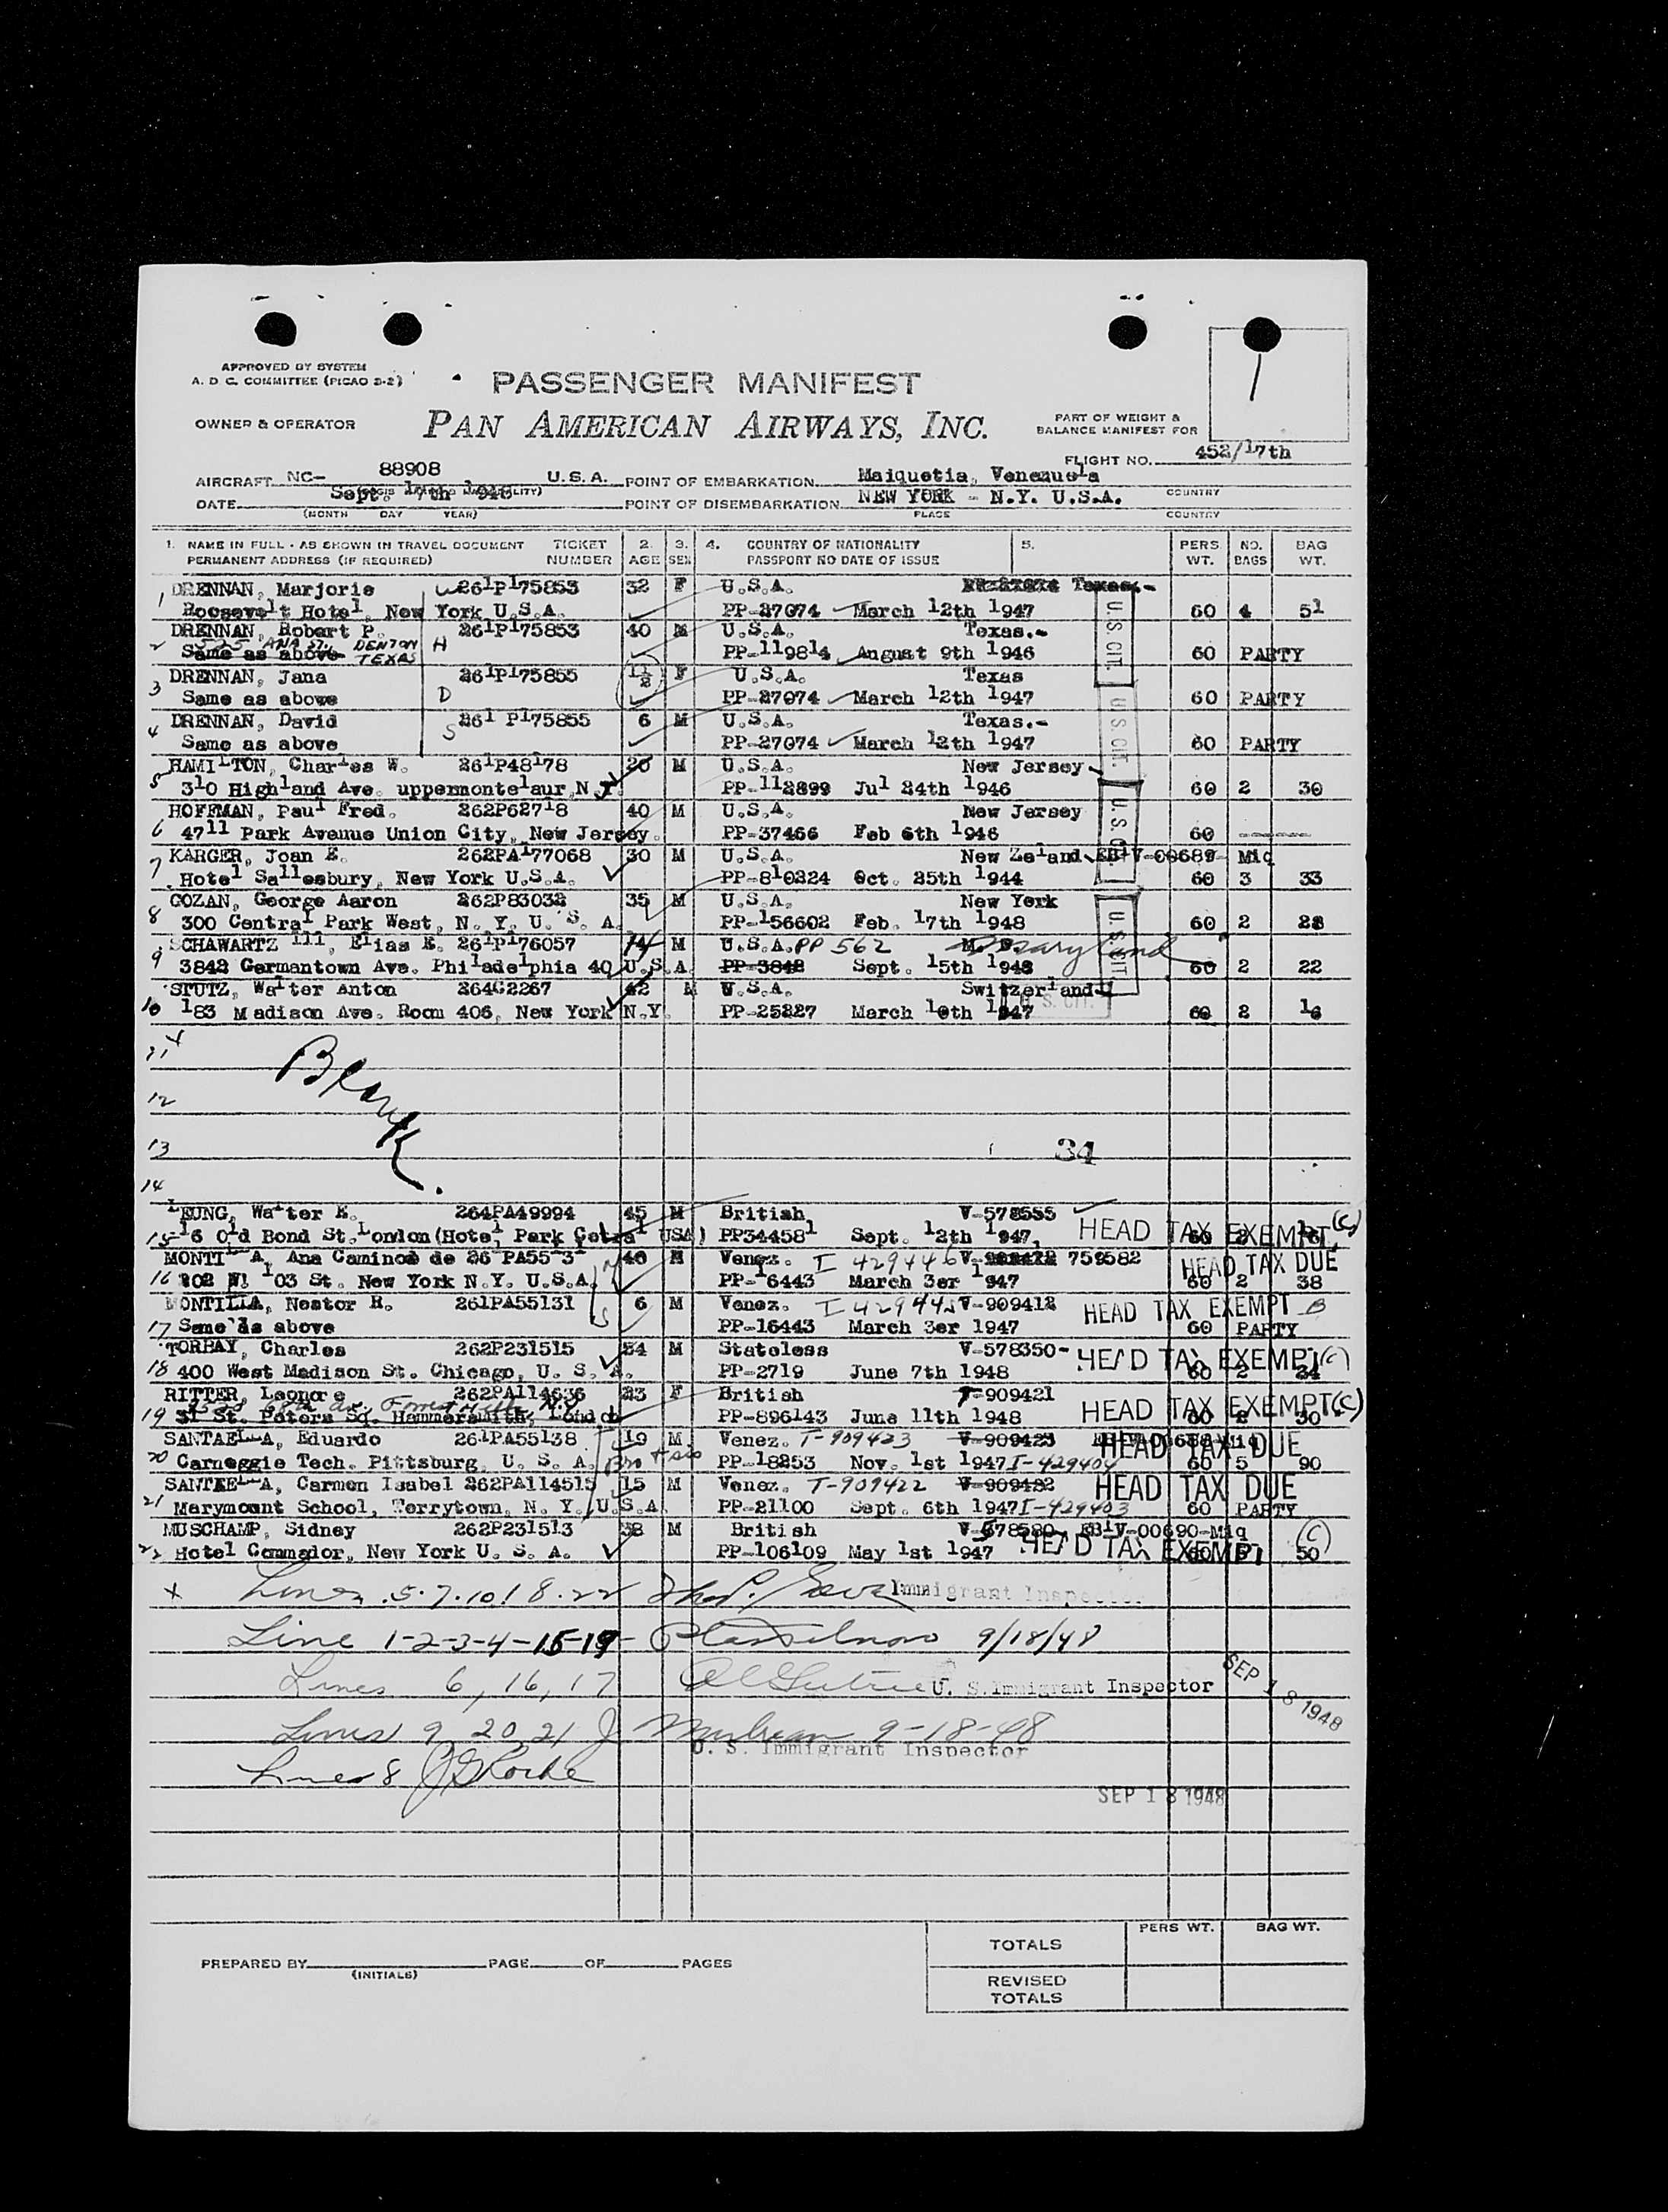 APPROVED BY SYSTEM
A. D. C. COMMITTEE (PICAO 2-2)
PASSENGER MANIFEST
1
OWNER & OPERATOR
PAN AMERICAN AIRWAYS, INC.
PART OF WEIGHT &
BALANCE MANIFEST FOR
FLIGHT NO. 452/17th
AIRCRAFT NC- 88908 U.S.A. POINT OF EMBARKATION Maiquetia, Venezuela
DATE Sept. 17th 1948 POINT OF DISEMBARKATION NEW YORK - N.Y. U.S.A. COUNTRY
(MONTH DAY YEAR) PLACE COUNTRY
1. NAME IN FULL - AS SHOWN IN TRAVEL DOCUMENT TICKET 2. 3. 4. COUNTRY OF NATIONALITY 5. PERS NO. BAG
PERMANENT ADDRESS (IF REQUIRED) NUMBER AGE SEX PASSPORT NO DATE OF ISSUE WT. BAGS WT.
DRENNAN, Marjorie W 261P175853 32 F U.S.A. Texas.-
1 Roosevelt Hotel, New York U.S.A. PP-27074 March 12th 1947 60 4 51
DRENNAN, Robert P. 261P175853 40 M U.S.A. Texas.-
525 ANA ST. DENTON TEXAS H
2 Same as above PP-119814 August 9th 1946 60 PARTY
DRENNAN, Jana 261P175855 1½ F U.S.A. Texas
3 Same as above D PP-27074 March 12th 1947 60 PARTY
DRENNAN, David 261 P175855 6 M U.S.A. Texas.-
4 Same as above S PP-27074 March 12th 1947 60 PARTY
HAMILTON, Charles W. 261P48178 26 M U.S.A. New Jersey
5 310 Highland Ave. uppermontelaur N.J. PP-112899 Jul 24th 1946 60 2 30
HOFFMAN, Paul Fred. 262P62718 40 M U.S.A. New Jersey
6 4711 Park Avenue Union City, New Jersey. PP-37466 Feb 6th 1946 60 -------
KARGER, Joan E. 262PA177068 30 M U.S.A. New Zeland EB1V-00689- Miq
7 Hotel Sallesbury, New York U.S.A. PP-810324 Oct. 25th 1944 60 3 33
GOZAN, George Aaron 262P83032 35 M U.S.A. New York
8 300 Central Park West, N. Y. U. S. A. PP-156602 Feb. 17th 1948 60 2 28
SCHAWARTZ 111, Elias E. 261P176057 14 M U.S.A. PP 562 Maryland
9 3842 Germantown Ave. Philadelphia 40 U.S.A. PP-3842 Sept. 15th 1948 60 2 22
STUTZ, Walter Anton 264C2267 42 M U.S.A. Switzerland
10 183 Madison Ave. Room 406, New York N.Y. PP-25227 March 10th 1947 60 2 16
U.S. CIT.
U.S. CIT.
U.S. CIT.
U.S. CIT.
U.S. CIT.
11
Blank
12
13 34
14
LEUNG, Walter K. 264PA49994 45 M British V-578555
15 16 Old Bond St. London (Hotel Park Cetral USA) PP344581 Sept. 12th 1947. HEAD TAX EXEMPT (C) 60
MONTILLA, Ana Caminos de 26 PA55 31 40 Venez. I 429446 V- 759582
16 202 W. 103 St. New York N.Y. U.S.A. PP-16443 March 3er 1947 HEAD TAX DUE 60 2 38
MONTILLA, Nestor R. 261PA55131 6 M Venez. V-909412
17 Same as above PP-16443 March 3er 1947 HEAD TAX EXEMPT B 60 PARTY
TORBAY, Charles 262P231515 24 M Stateless V-578350-
18 400 West Madison St. Chicago, U. S. A. PP-2719 June 7th 1948 HEAD TAX EXEMPT (C) 60 2 34
RITTER, Leonore 262PA114636 23 F British T-909421
19 31 St. Peters Sq. Hammersmith, London PP-896143 June 11th 1948 HEAD TAX EXEMPT (C) 60 2 30
SANTAELLA, Eduardo 261PA55138 19 M Venez. T-909423 V-909423
20 Carneggie Tech. Pittsburg, U. S. A. Bro + sis PP-18253 Nov. 1st 1947 I-429404 HEAD TAX DUE 60 5 90
SANTAELLA, Carmen Isabel 262PA114515 15 M Venez. T-909422 V-909482
21 Marymount School, Terrytown, N. Y. U.S.A PP-21100 Sept. 6th 1947 I-429403 HEAD TAX DUE 60 PARTY
MUSCHAMP, Sidney 262P231513 38 M British V-578580- EB1V-00690-Miq (C)
22 Hotel Commador, New York U. S. A. PP-106109 May 1st 1947 HEAD TAX EXEMPT 60 50
x Lines 5.7.10.18.22 Immigrant Inspector
Line 1-2-3-4-15-19- 9/18/48
Lines 6, 16, 17 U. S. Immigrant Inspector SEP 18 1948
Lines 9, 20, 21 9-18-48
U. S. Immigrant Inspector
Lines 8
SEP 18 1948
PERS WT. BAG WT.
TOTALS
PREPARED BY PAGE OF PAGES
(INITIALS)
REVISED
TOTALS